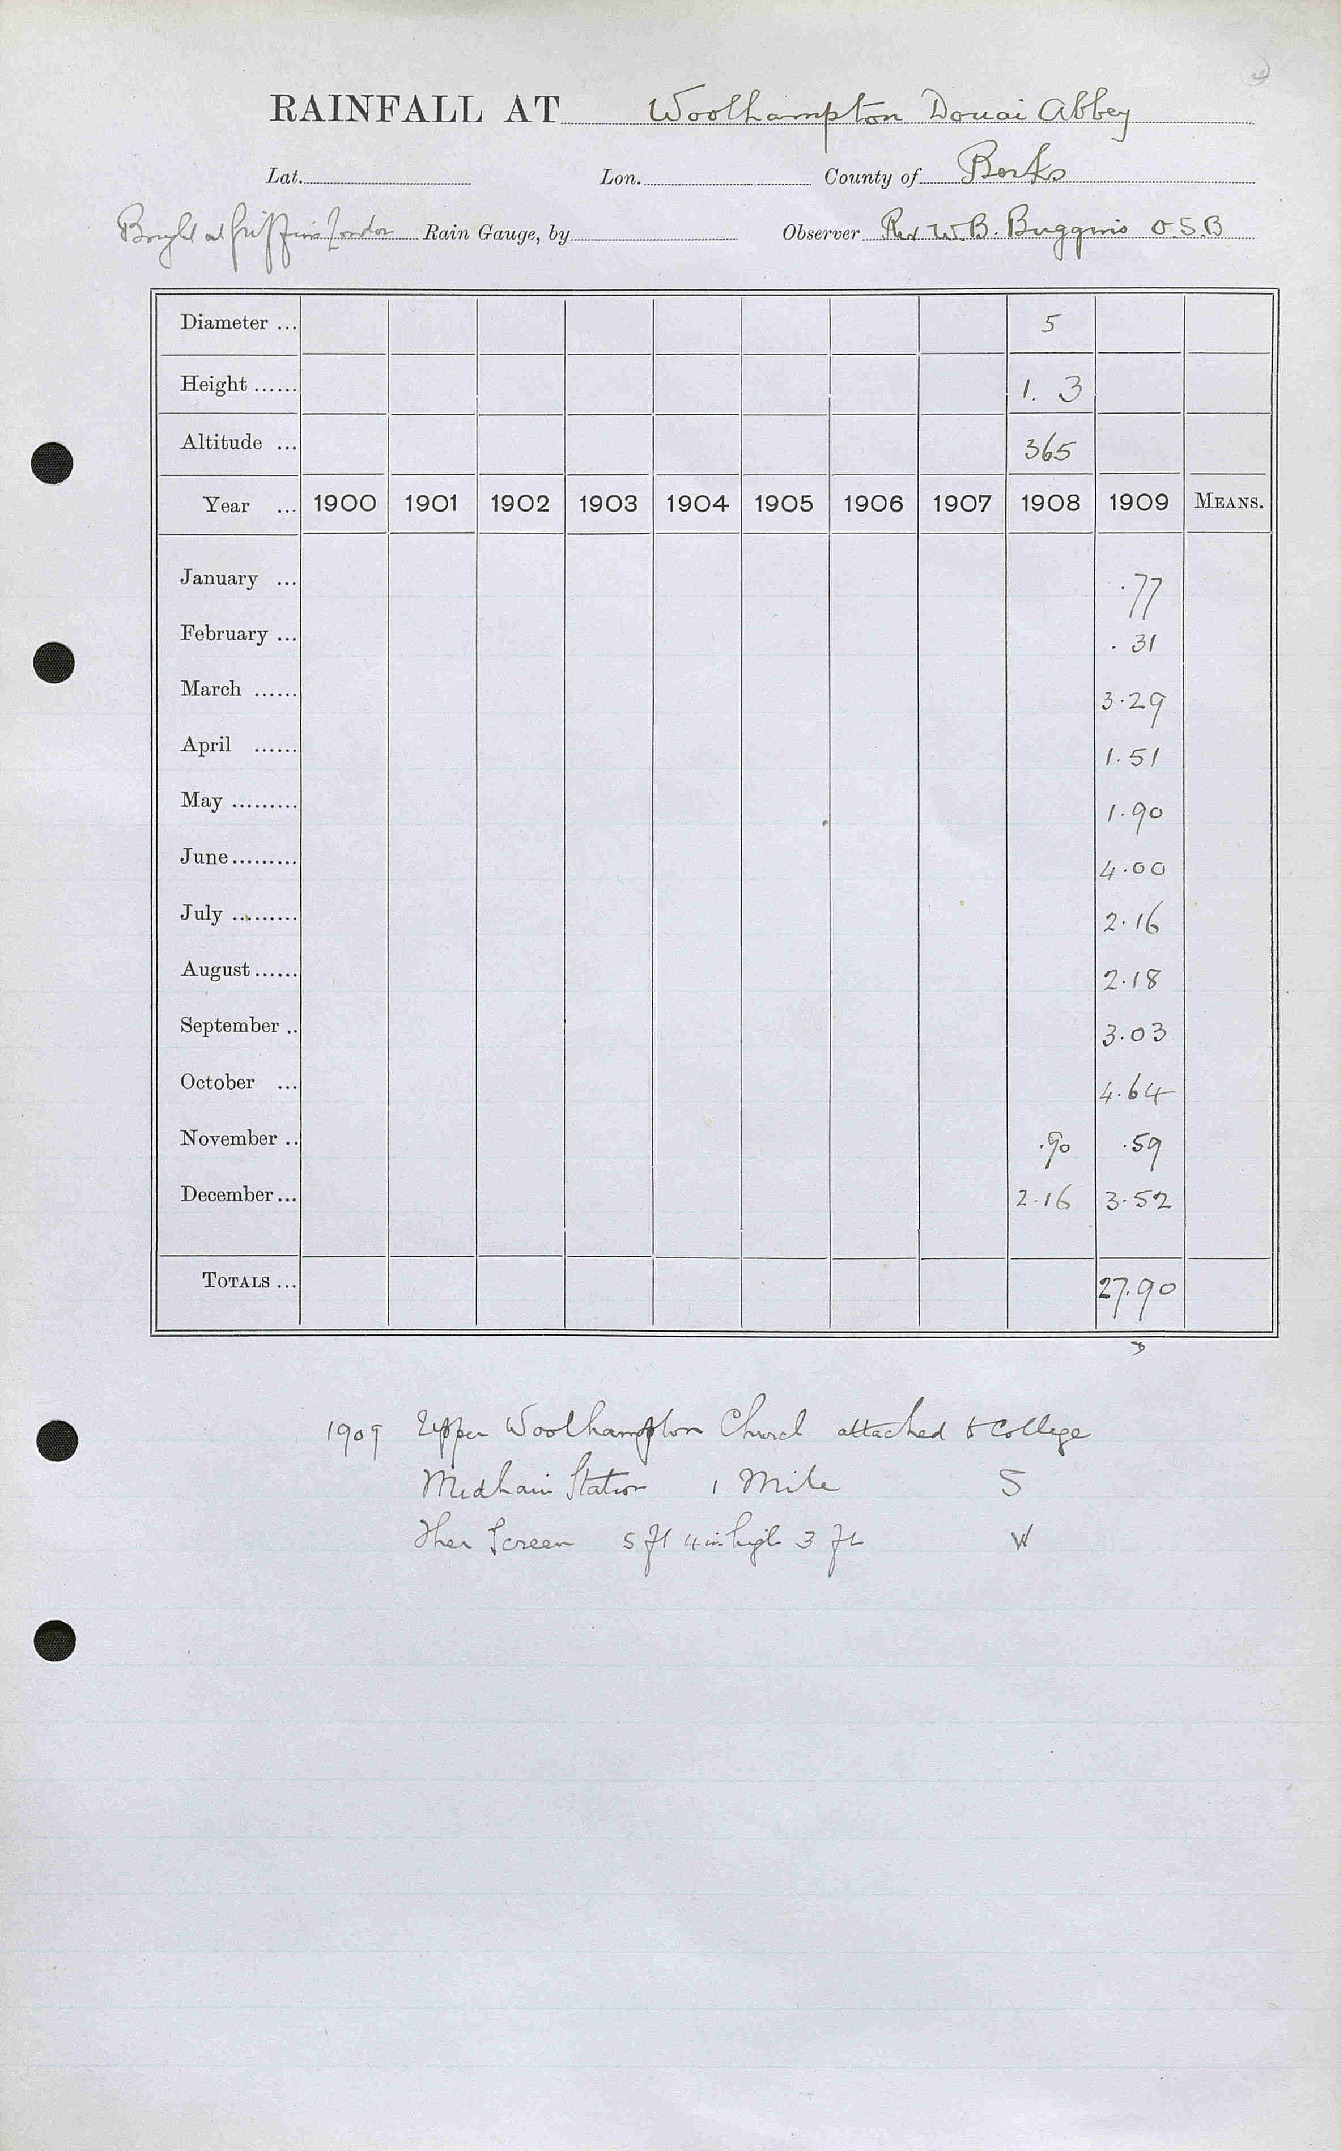 RAINFALL AT Woolhampton Douai Abbey
Lat. Lon. County of Berks
Bought at Griffins London Rain Gauge, by Observer Rev W.B. Buggins O.S.B
Diameter ... 5
Height ...... 1. 3
Altitude ... 365
Year ... 1900 1901 1902 1903 1904 1905 1906 1907 1908 1909 MEANS.
January ... .77
February ... .31
March ...... 3.29
April ...... 1.51
May ......... 1.90
June ......... 4.00
July ......... 2.16
August ...... 2.18
September .. 3.03
October ... 4.64
November .. .90 .59
December ... 2.16 3.52
TOTALS ... 27.90
1909 Upper Woolhampton Church attached to College
Midham Station 1 Mile S
Ther Screen 5 ft 4 in high 3 ft W